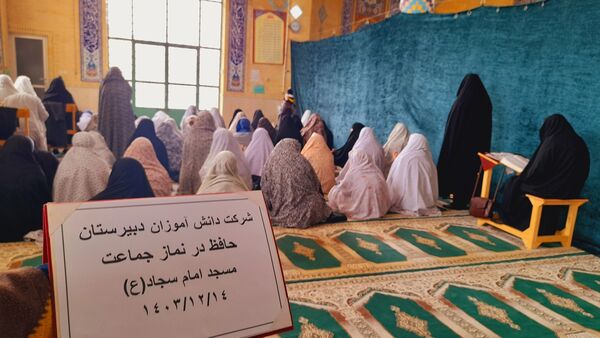 شرکت دانش آموزان دبیرستان
حافظ در نماز جماعت
مسجد امام سجاد(ع)
۱۴۰۳/۱۲/۱۴